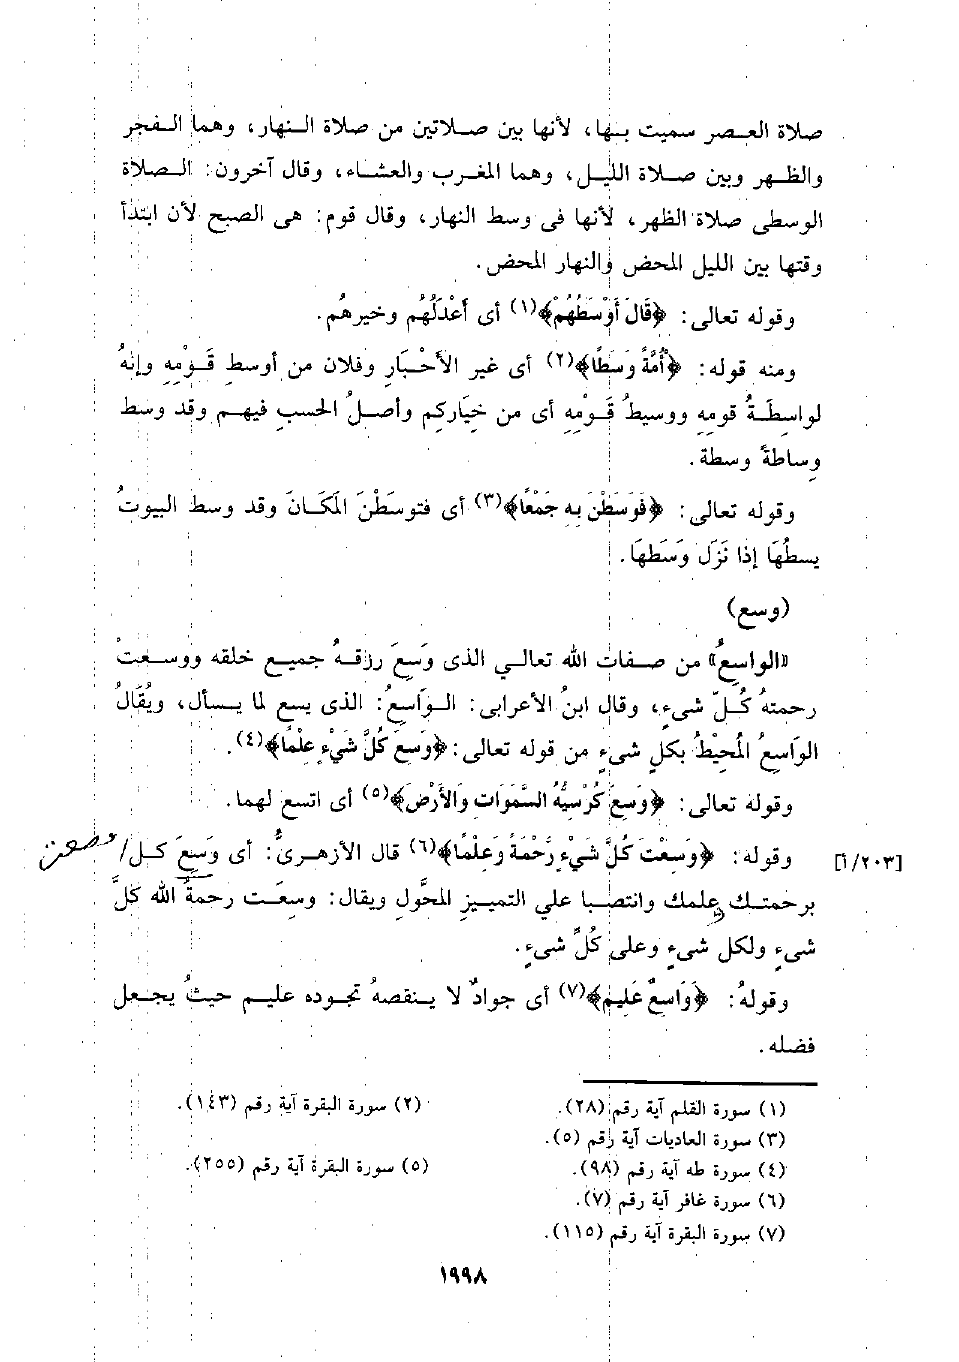 صلاة العصر سميت بها، لأنها بين صلاتين من صلاة النهار، وهما الفجر
والظهر وبين صلاة الليل، وهما المغرب والعشاء، وقال آخرون: الصلاة
الوسطى صلاة الظهر، لأنها فى وسط النهار، وقال قوم: هى الصبح لأن ابتدأ
وقتها بين الليل المحض والنهار المحض.
وقوله تعالى: ﴿قَالَ أَوْسَطُهُمْ﴾(١) أى أَعْدَلُهُم وخيرهُم.
ومنه قوله: ﴿أُمَّةً وَسَطًا﴾(٢) أى غير الأَحْبَار وفلان من أوسطِ قَوْمِهِ وإنهُ
لواسطَةُ قومِهِ ووسيطُ قَوْمِهِ أى من خيَاركم وأصلُ الحسب فيهم وقد وسط
وساطةً وسطة.
وقوله تعالى: ﴿فَوَسَطْنَ بِهِ جَمْعًا﴾(٣) أى فتوسطَنَ المَكَانَ وقد وسط البيوتُ
يسطُهَا إذا نَزَل وَسَطهَا.
(وسع)
«الواسعُ» من صفات الله تعالي الذى وَسعَ رزقهُ جميع خلقه ووسعتْ
رحمتهُ كُلّ شىءٍ، وقال ابنُ الأعرابى: الوَاسعُ: الذى يسع لما يسأل، ويُقَالُ
الوَاسِعُ المُحِيْطُ بكلِ شىءٍ من قوله تعالى: ﴿وَسِعَ كُلَّ شَيْءٍ عِلْمًا﴾(٤).
وقوله تعالى: ﴿وَسِعَ كُرْسِيُّهُ السَّمَوَاتِ وَالأَرْضَ﴾(٥) أى اتسع لهما.
[٢٠٣/أ] وقوله: ﴿وَسِعْتَ كُلَّ شَيْءٍ رَّحْمَةً وَعِلْمًا﴾(٦) قال الأزهرىُّ: أى وَسِعَ كل/
برحمتك وعلمك وانتصبا علي التمييزِ المحَّول ويقال: وسعَت رحمةُ الله كلَّ
شىءٍ ولكل شىءٍ وعلى كُلِّ شىءٍ.
وقولهُ: ﴿وَاسِعٌ عَلِيمٌ﴾(٧) أى جوادٌ لا ينقصهُ تجوده عليم حيثُ يجعل
فضله.
(١) سورة القلم آية رقم (٢٨).
(٢) سورة البقرة آية رقم (١٤٣).
(٣) سورة العاديات آية رقم (٥).
(٤) سورة طه آية رقم (٩٨).
(٥) سورة البقرة آية رقم (٢٥٥).
(٦) سورة غافر آية رقم (٧).
(٧) سورة البقرة آية رقم (١١٥).
١٩٩٨